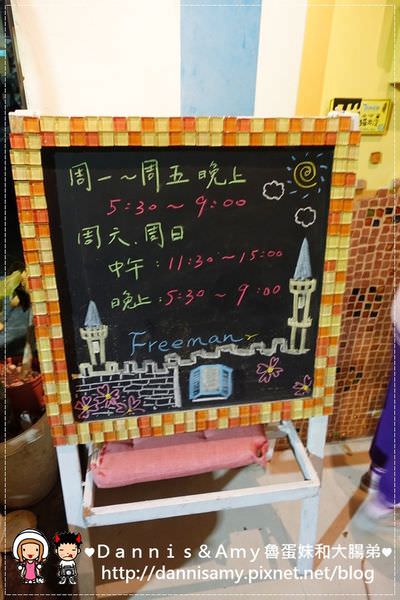 周一~周五晚上
5:30~9:00
周六.周日
中午:11:30~15:00
晚上:5:30~9:00
Freeman
♥Dannis&Amy魯蛋妹和大腸弟♥
http://dannisamy.pixnet.net/blog